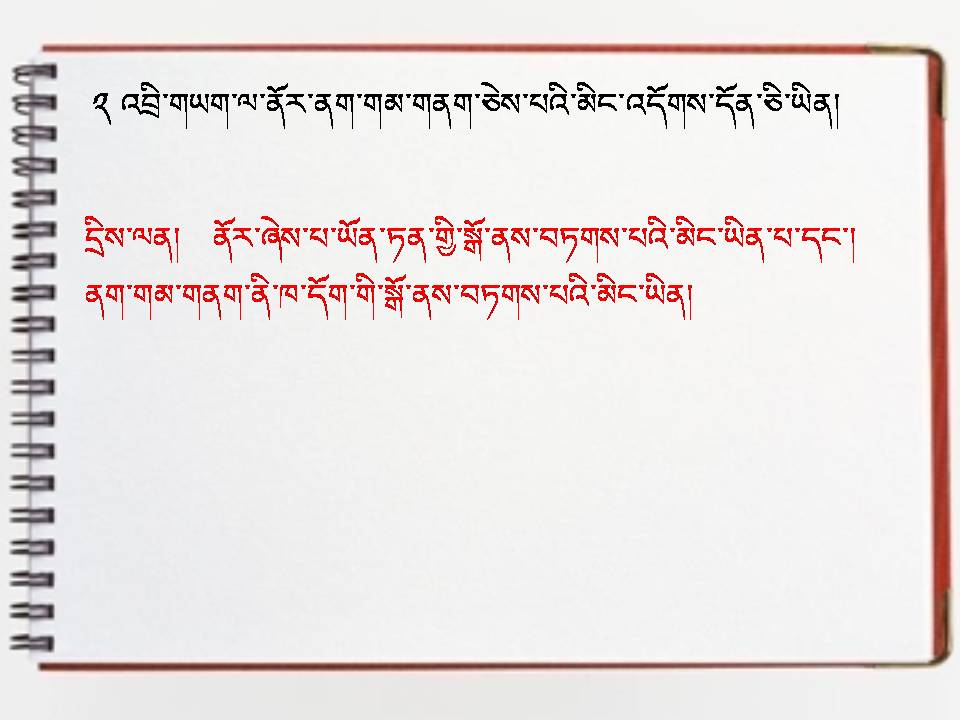 ༢ འབྲི་གཡག་ལ་ནོར་ནག་གམ་གནག་ཅེས་པའི་མིང་འདོགས་དོན་ཅི་ཡིན།
དྲིས་ལན།   ནོར་ཞེས་པ་ཡོན་ཏན་གྱི་སྒོ་ནས་བཏགས་པའི་མིང་ཡིན་པ་དང་།
ནག་གམ་གནག་ནི་ཁ་དོག་གི་སྒོ་ནས་བཏགས་པའི་མིང་ཡིན།